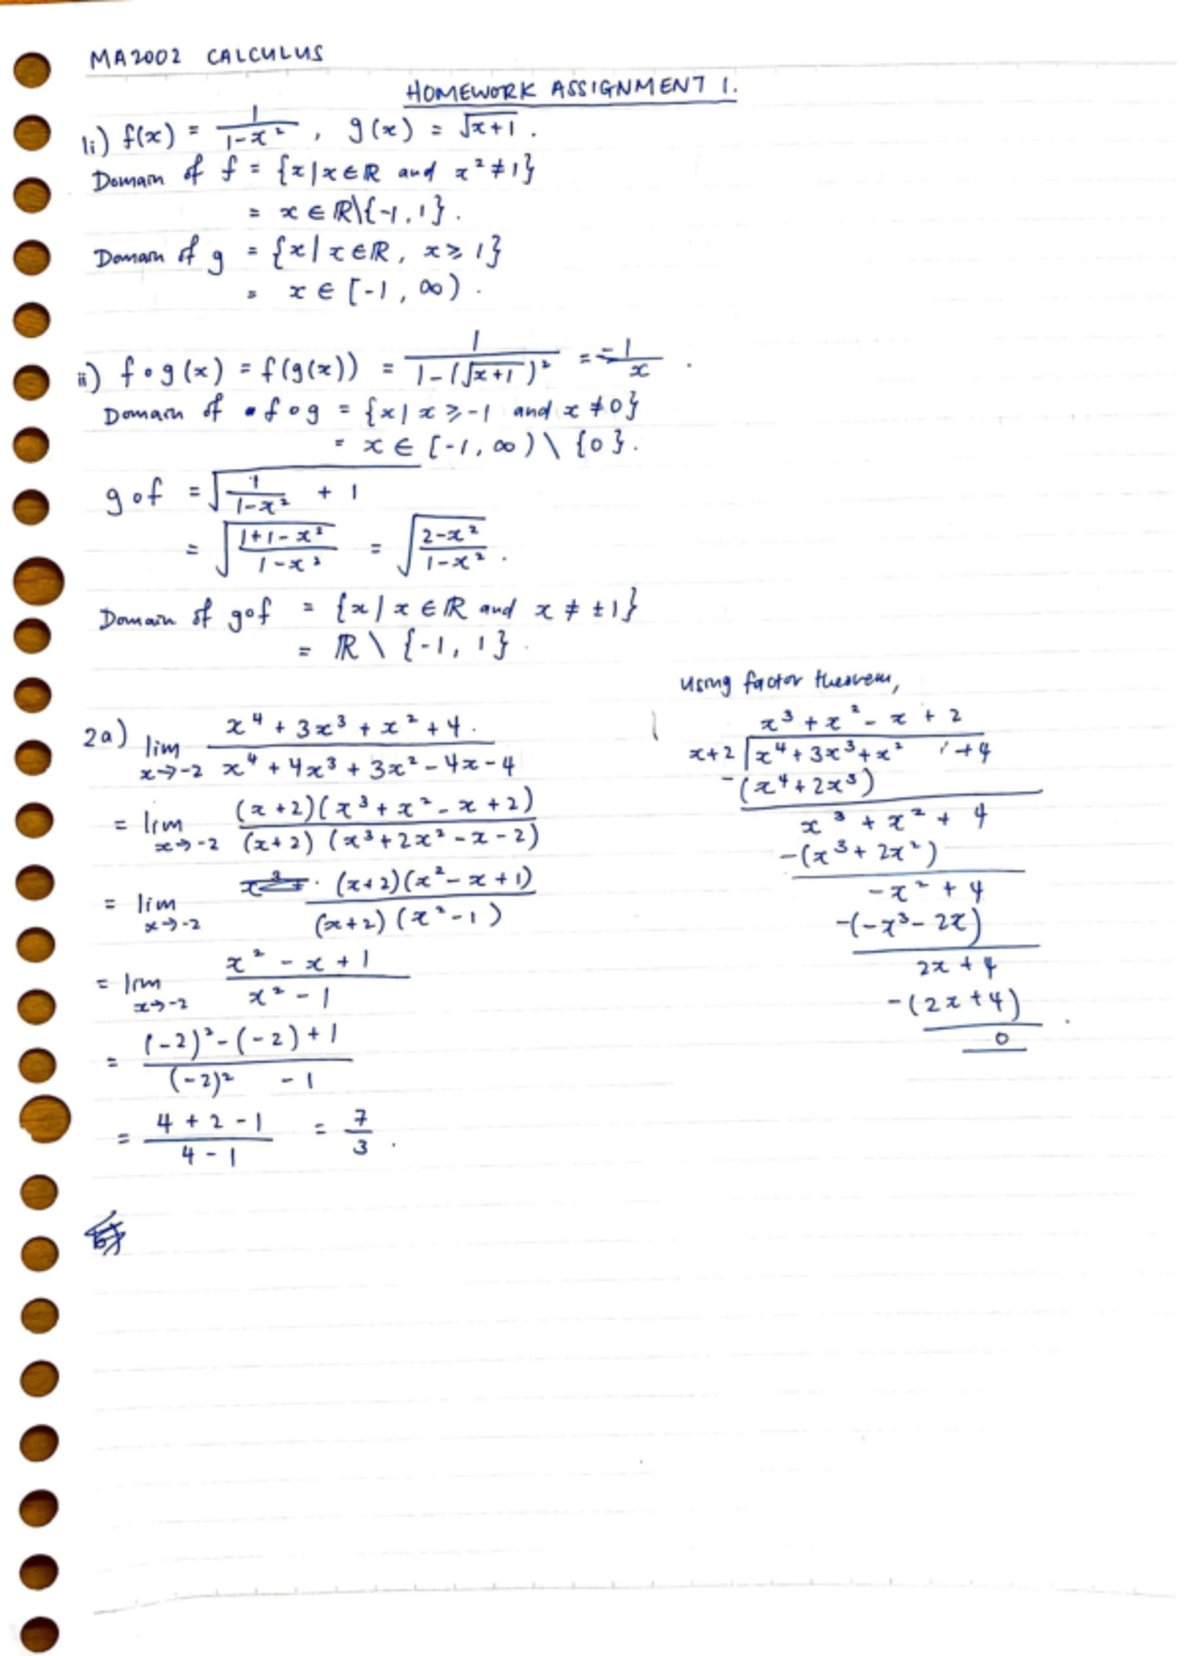 MA2002 CALCULUS
HOMEWORK ASSIGNMENT 1.
1i) f(x) = 1/(1-x²) , g(x) = √(x+1) .
Domain of f = {x|x∈ℝ and x²≠1}
= x ∈ ℝ\{-1,1}.
Domain of g = {x|x∈ℝ, x≥1}
= x ∈ [-1, ∞) .
ii) f∘g(x) = f(g(x)) = 1/(1-(√(x+1))²) = -1/x .
Domain of f∘g = {x|x≥-1 and x≠0}
= x ∈ [-1,∞)\{0}.
g∘f = √(1/(1-x²) + 1)
= √((1+1-x²)/(1-x²)) = √((2-x²)/(1-x²)) .
Domain of g∘f = {x|x∈ℝ and x≠±1}
= ℝ\{-1, 1} .
2a) lim x→-2 (x⁴+3x³+x²+4)/(x⁴+4x³+3x²-4x-4)
= lim x→-2 (x+2)(x³+x²-x+2)/(x+2)(x³+2x²-x-2)
= lim x→-2 (x+2)(x²-x+1)/(x+2)(x²-1)
= lim x→-2 (x²-x+1)/(x²-1)
= ((-2)²-(-2)+1)/((-2)²-1)
= (4+2-1)/(4-1) = 7/3 .
Using factor theorem,
x³+x²-x+2
x+2 √ x⁴+3x³+x² +4
-(x⁴+2x³)
x³+x²+4
-(x³+2x²)
-x²+4
-(-x³-2x)
2x+4
-(2x+4) .
0